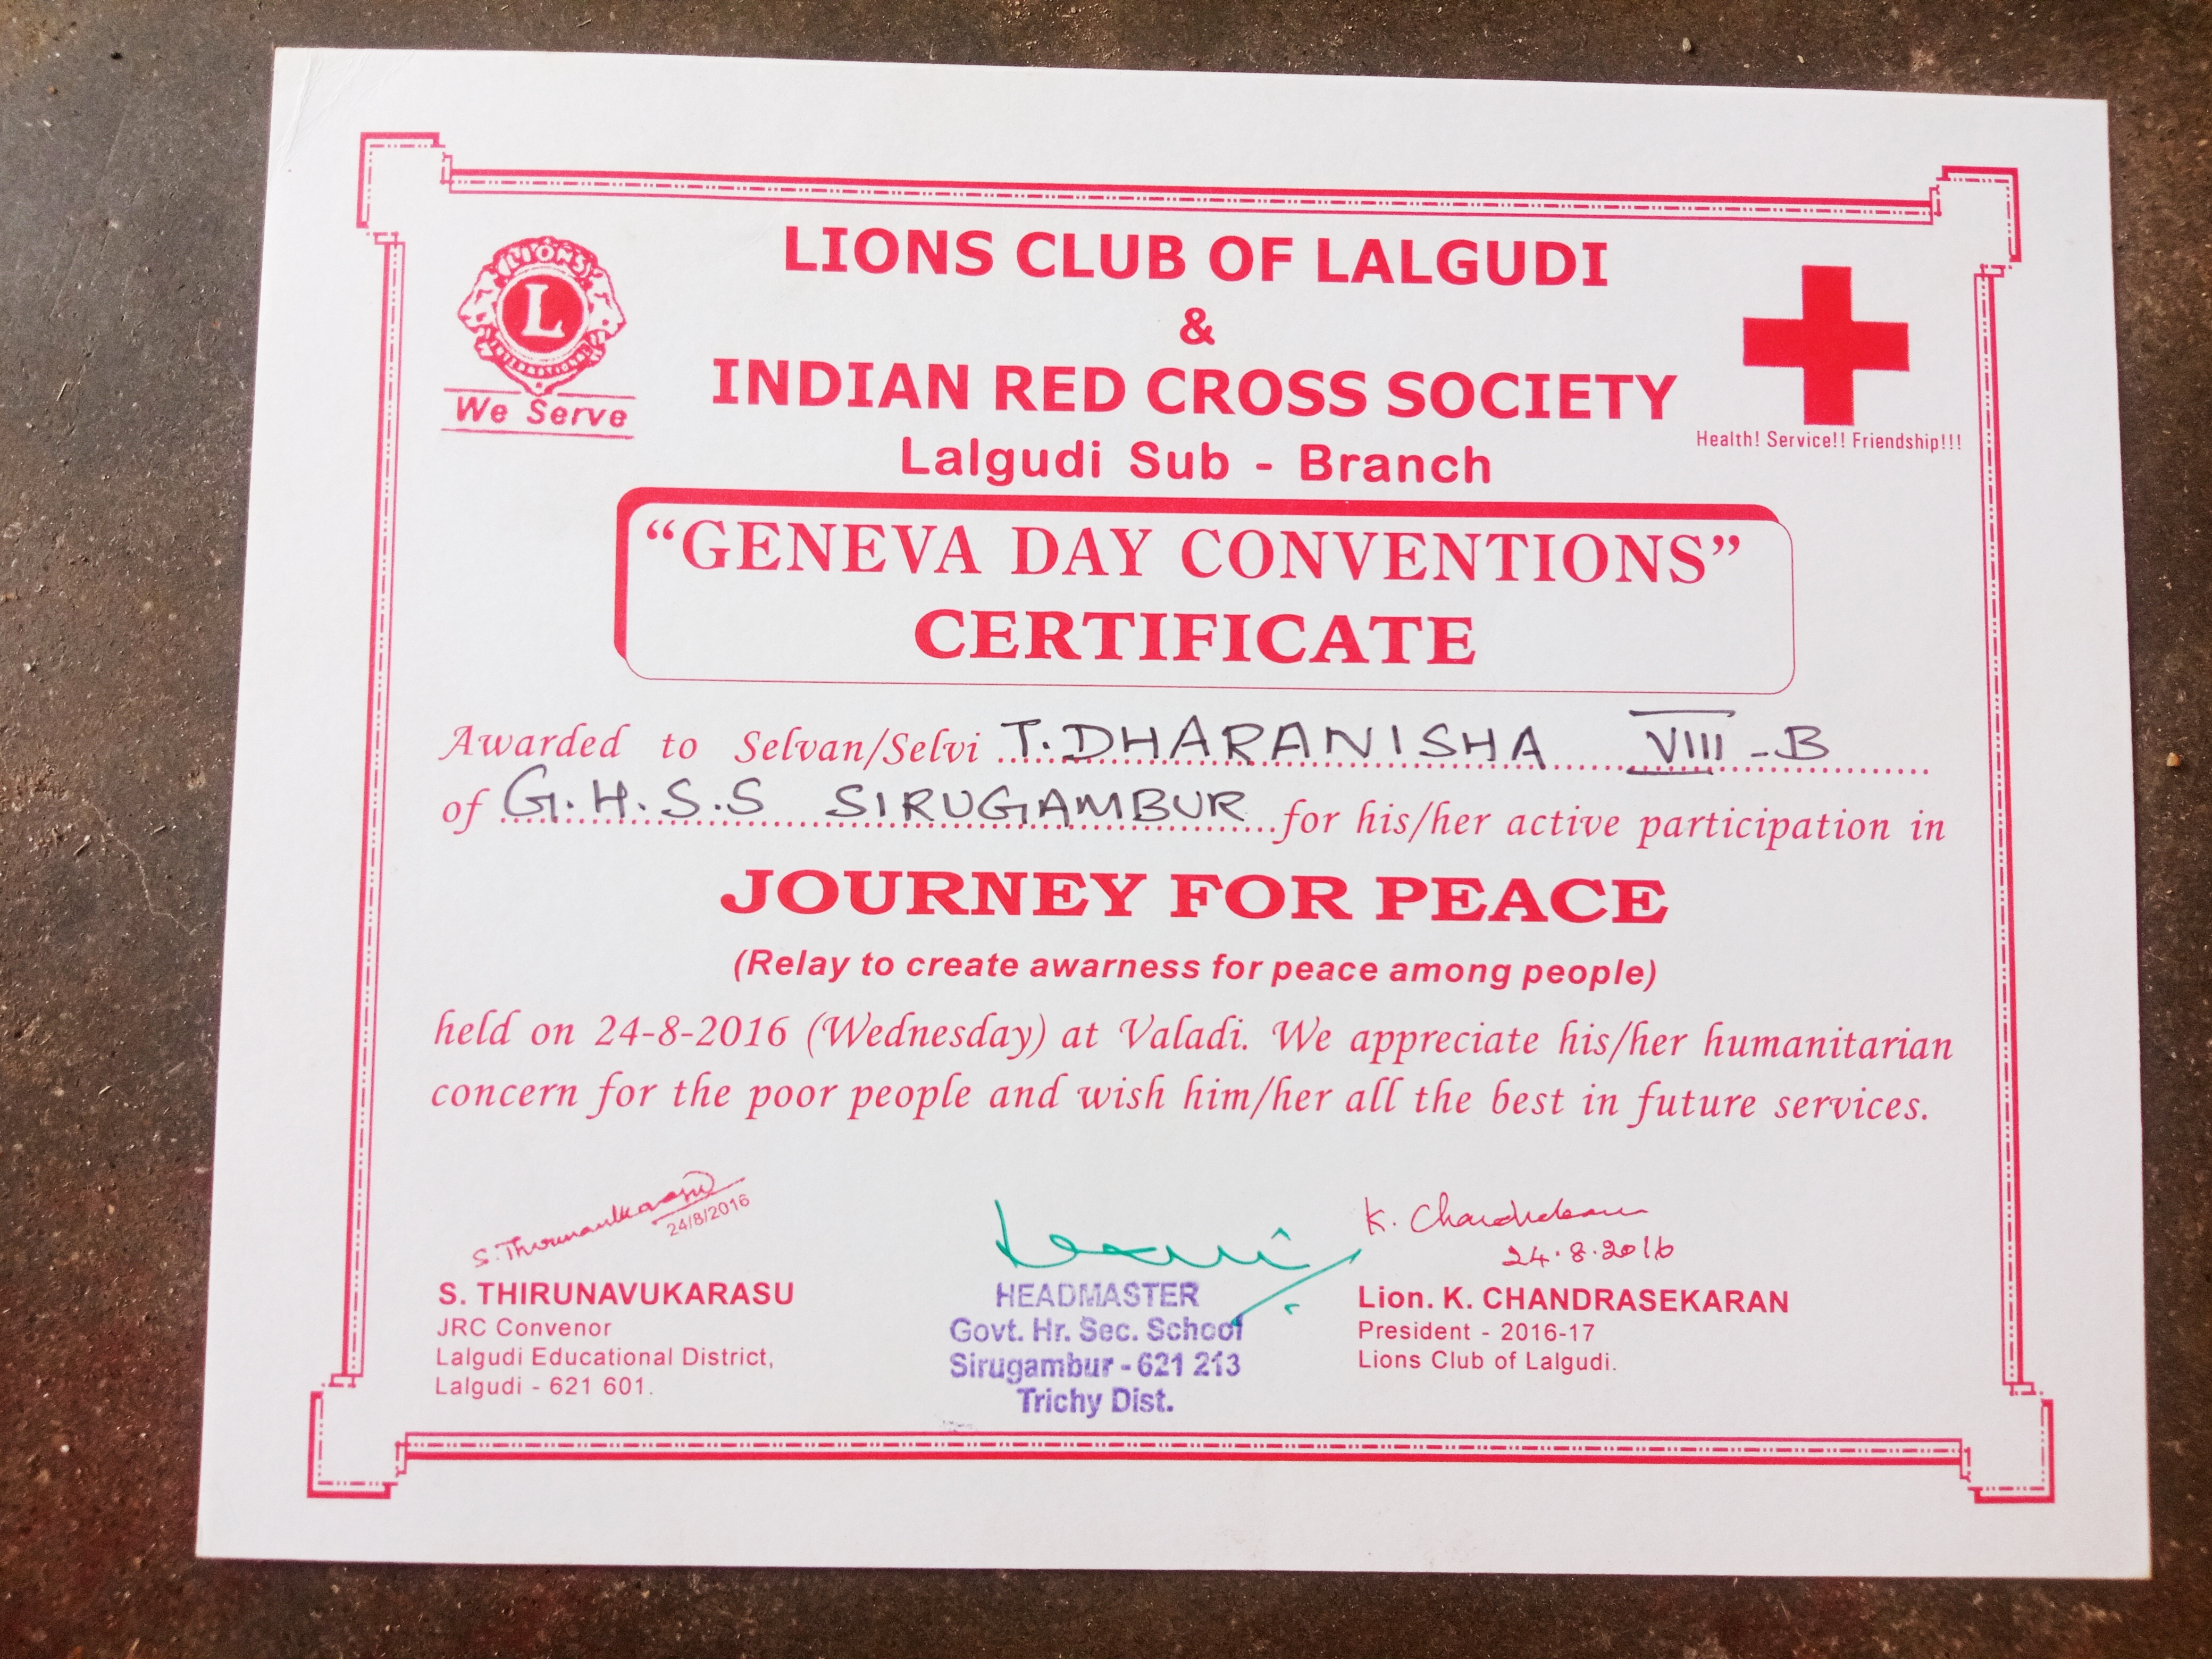 LIONS CLUB OF LALGUDI
&
INDIAN RED CROSS SOCIETY
Lalgudi Sub - Branch
LIONS
L
INTERNATIONAL
We Serve
Health! Service!! Friendship!!!
“GENEVA DAY CONVENTIONS”
CERTIFICATE
Awarded to Selvan/Selvi T. DHARANISHA VIII - B
of G.H.S.S SIRUGAMBUR for his/her active participation in
JOURNEY FOR PEACE
(Relay to create awarness for peace among people)
held on 24-8-2016 (Wednesday) at Valadi. We appreciate his/her humanitarian
concern for the poor people and wish him/her all the best in future services.
S. Thirunavukarasu
24/8/2016
S. THIRUNAVUKARASU
JRC Convenor
Lalgudi Educational District,
Lalgudi - 621 601.
HEADMASTER
Govt. Hr. Sec. School
Sirugambur - 621 213
Trichy Dist.
K. Chandrasekaran
24.8.2016
Lion. K. CHANDRASEKARAN
President - 2016-17
Lions Club of Lalgudi.